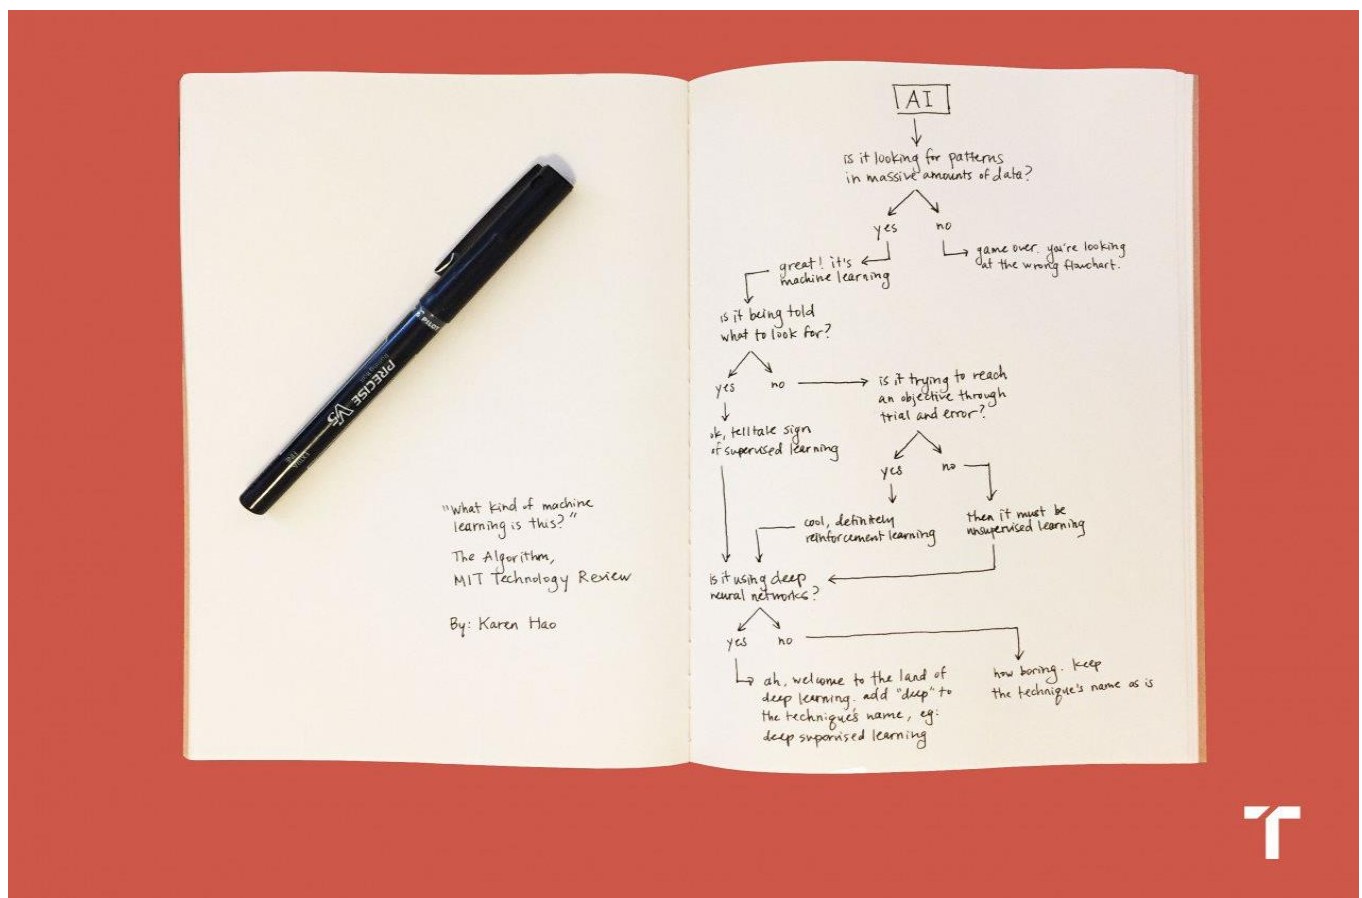 PILOT
PRECISE V5
Rolling Ball
EXTRA
FINE
"What kind of machine
learning is this?"
The Algorithm,
MIT Technology Review
By: Karen Hao
AI
is it looking for patterns
in massive amounts of data?
yes
no
great! it's
machine learning
game over. you're looking
at the wrong flowchart.
is it being told
what to look for?
yes
no
is it trying to reach
an objective through
trial and error?
ok, telltale sign
of supervised learning
yes
no
cool, definitely
reinforcement learning
then it must be
unsupervised learning
Is it using deep
neural networks?
yes
no
ah, welcome to the land of
deep learning. add "deep" to
the technique's name, eg:
deep supervised learning
how boring. keep
the technique's name as is